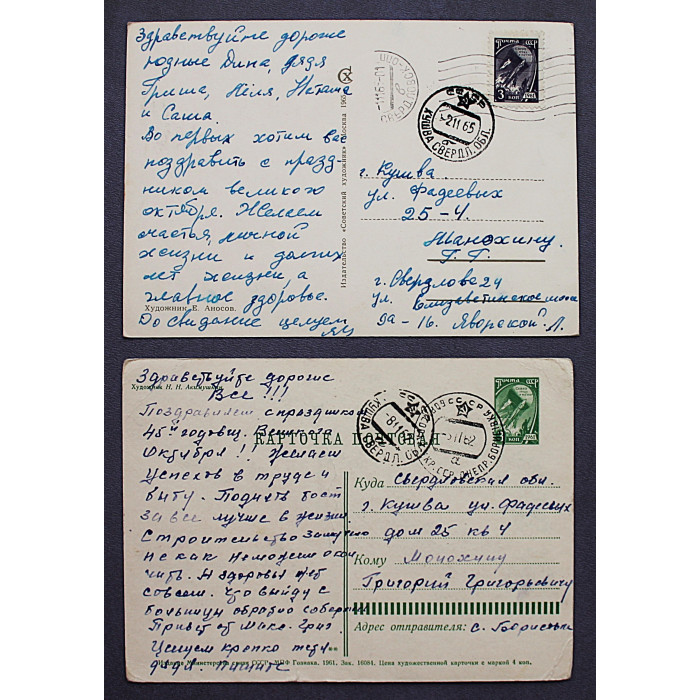 Здравствуйте дороже
родные Дина, дядя
Гриша, Неля, Наташа
и Саша.
Во первых хотим вас
поздравить с празд-
ником великого
октября. Желаем
счастья, личной
жизни и долгих
лет жизни, а
главное здоровье.
Художник Е. Аносов.
До свидание целуем
Издательство «Советский художник» Москва
ПОЧТА СССР
3 КОП
1961
СССР
-2 11 65
КУШВА СВЕРДЛ. ОБЛ.
г. Кушва
ул. Фадеевых
25-4.
Манохину.
Г. Г.
г. Свердловс 24
ул.
9а-16. Яворской. Л.
Здравствуйте дорогие
Художник Н. Н.
Все!!!
Поздравляем с праздником
45й годовщ. Великого
Октября! Желаем
Успехов в труде и
быту. Поднять тост
За все лучше в жизни.
Строительство
не как не можем окон
чить. И здоровья нет
совсем. Что выйду с
больницы обратно
Привет от
Целуем крепко тетя
дядя.
КАРТОЧКА ПОЧТОВАЯ
КУШВА СВЕРДЛ. ОБЛ.
-8 11 62
СССР
УКР. ССР. ДНЕПР.
ПОЧТА СССР
КОП
1961
Куда Свердловская обл.
г. Кушва ул. Фадеевых
дом 25 кв 4
Кому Монохину
Григорий Григорьевичу
Адрес отправителя: с.
Издание Министерства связи СССР. МПФ Гознака. 1961. Зак. 16084. Цена художественной карточки с маркой 4 коп.